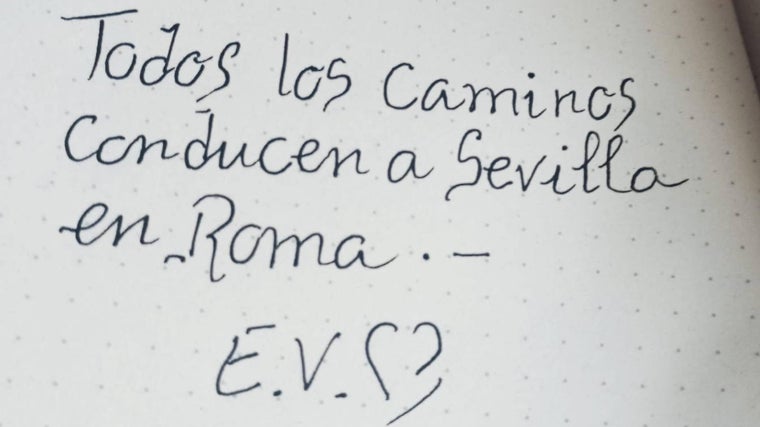 Todos los caminos
conducen a Sevilla
en Roma . –
E.V. ♡